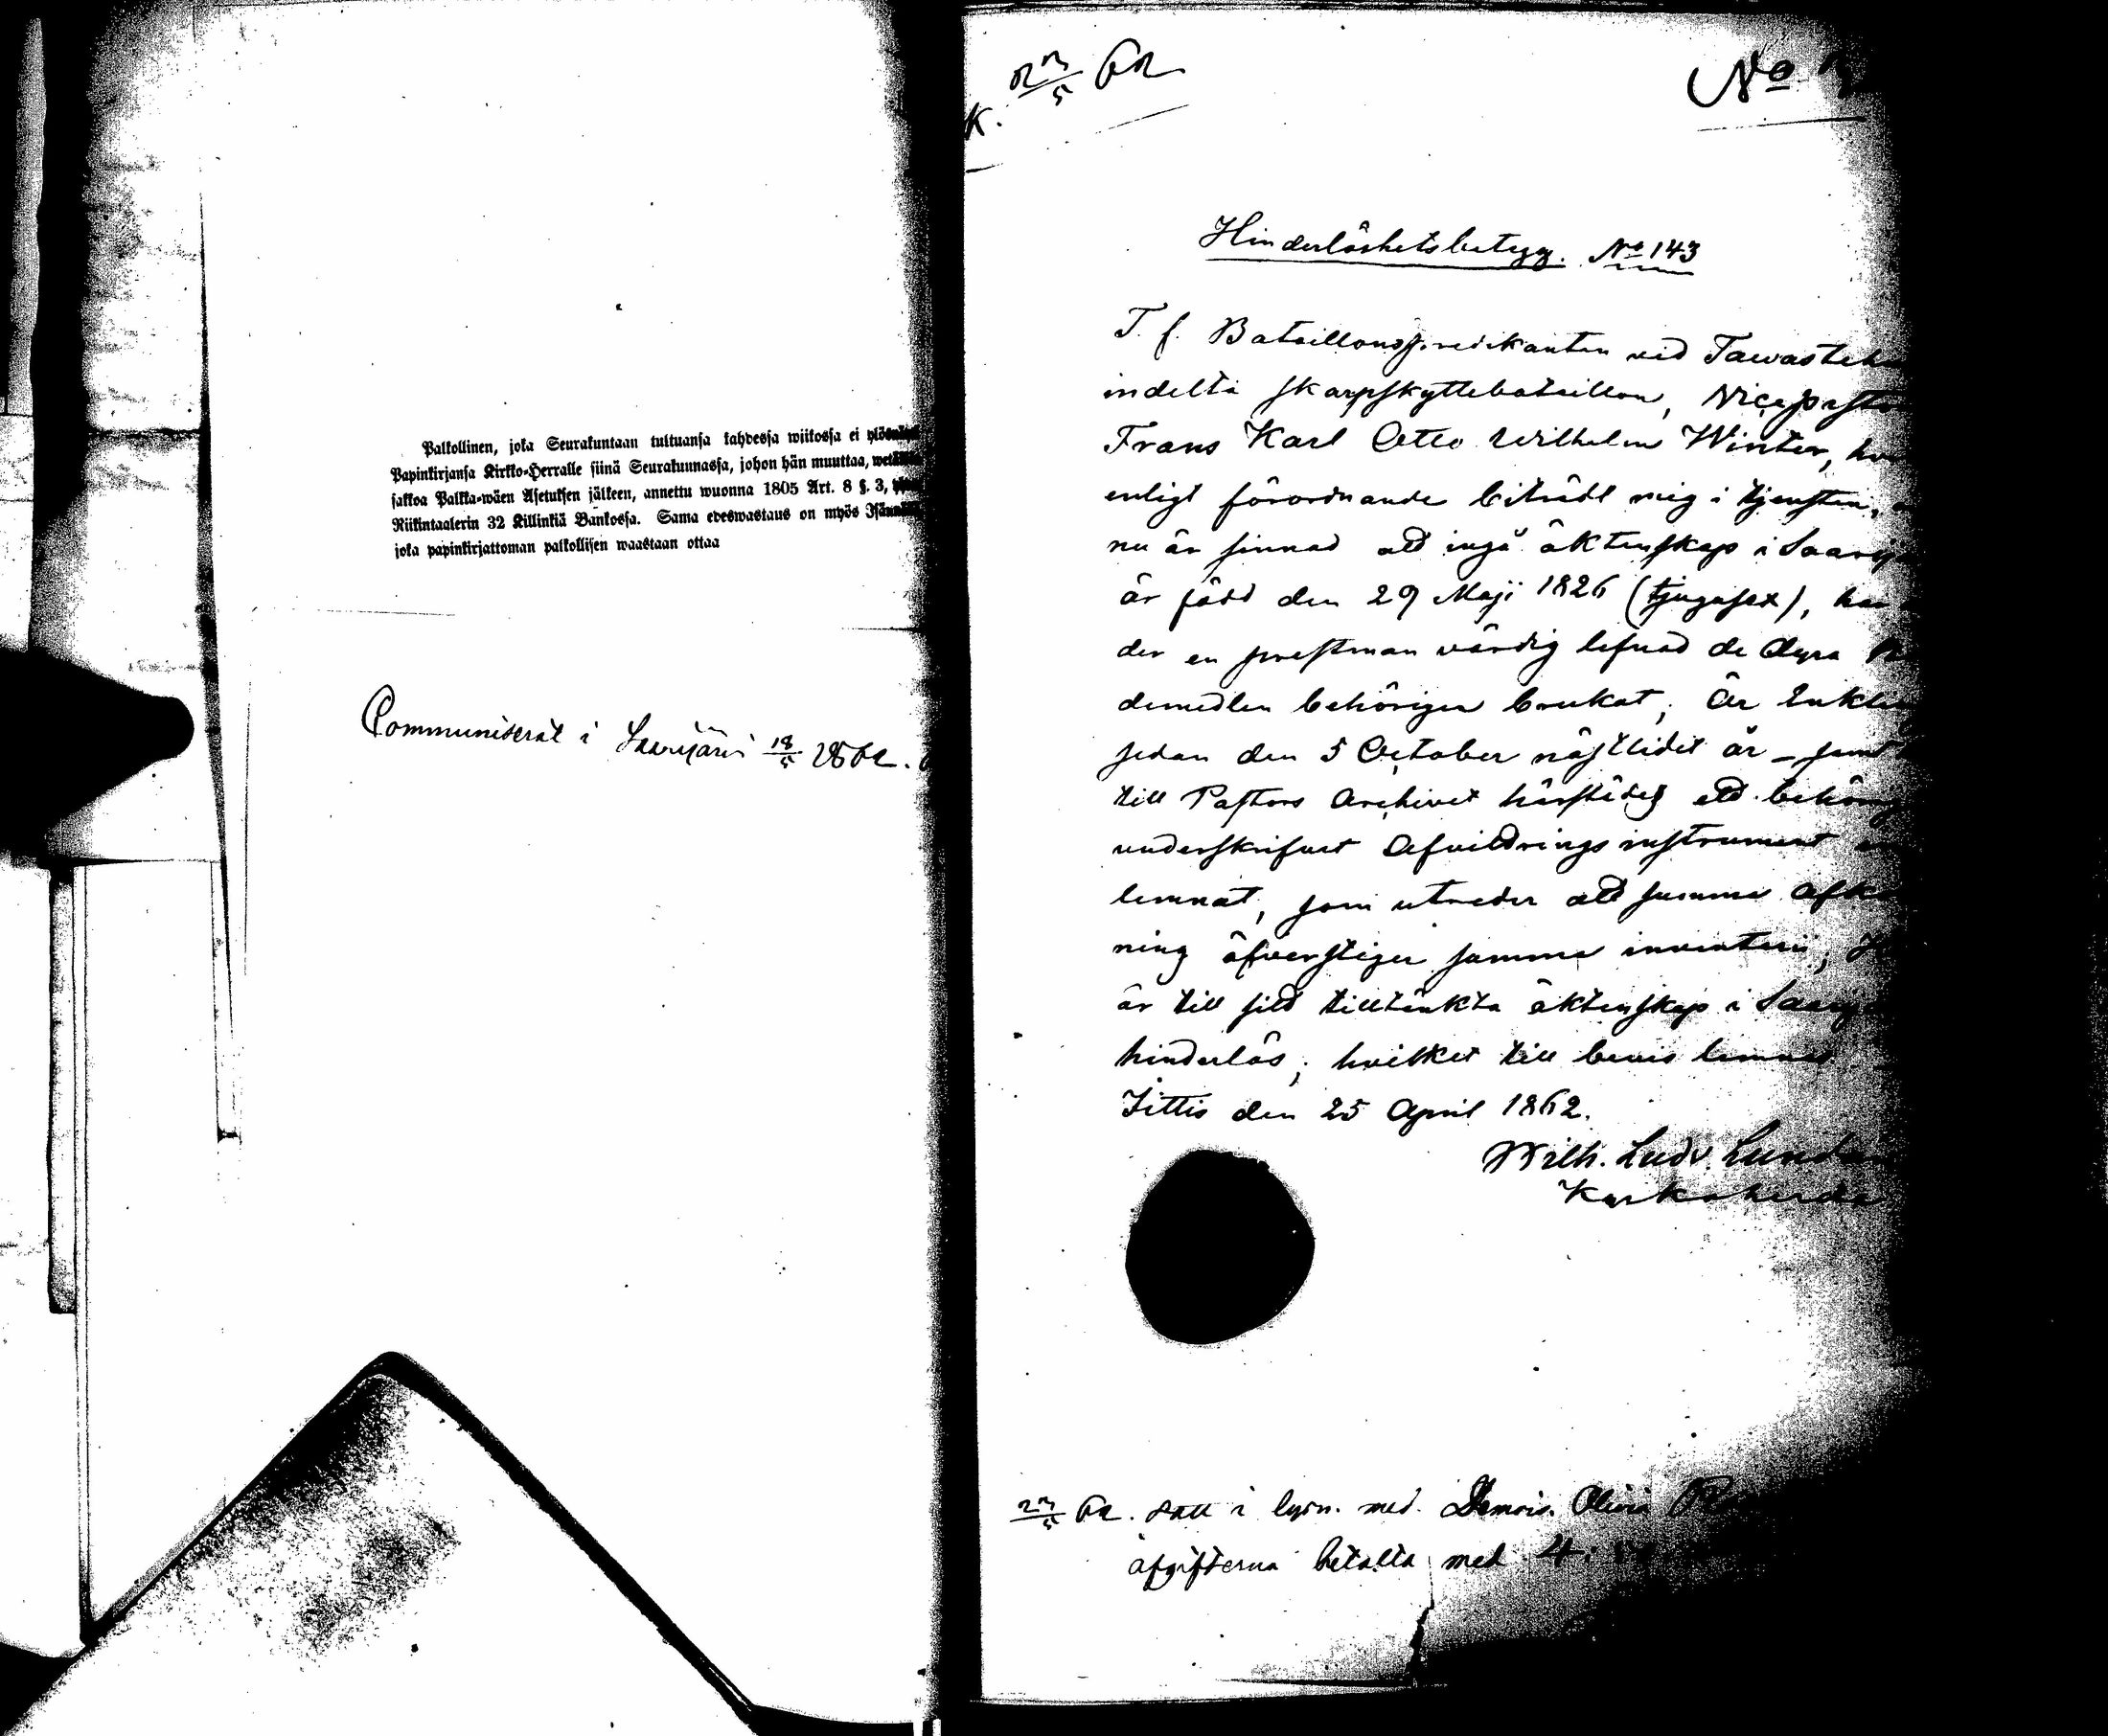 Palkollinen, joka Seurakuntaan tultuansa kahdessa wiikossa ei
Papinkirjansa Kirkko-Herralle siinä Seurakunnassa, johon hän muuttaa,
sakkoa Palkka-wäen Asetuksen jälkeen, annettu wuonna 1805 Art. 8 §. 3,
Riikintaalerin 32 Killinkiä Bankossa. Sama edeswastaus on myös
joka papinkirjattoman palkollisen waastaan ottaa
Communicerat i Saarijärvi 18/5 1862.
K. 23/5 62
No
Hinderlöshetsbetyg. No 143
T. f. Bataillonspredikanten vid Tawastehu
indelta skarpskyttebataillon, Vicepasto
Frans Karl Otto Wilhelm Winter,
enligt förordnande biträdt mig i tjensten,
nu är sinnad att ingå äktenskap i Saarij
är född den 29 Maji 1826 (tjugusex), har
der en prestman värdig lefnad de dyra
demedlen behörigen brukat; Är Enkl
sedan den 5 October nästlidit år – samt
till Pastors Archivet härstädes ett behörig
underskrifvet Afvittringsinstrument
lemnat, som utreder att summa
ning öfverstiger summa inventarii;
är till sitt tilltänkta äktenskap i Saarij
hinderlös; hvilket till bevis lemnas
Jittis den 25 April 1862.
Wilh. Ludv. Lund
Kyrkoherde
23/5 62. i lysn. med Demois. Olivia
afgifterna betalta med 4: